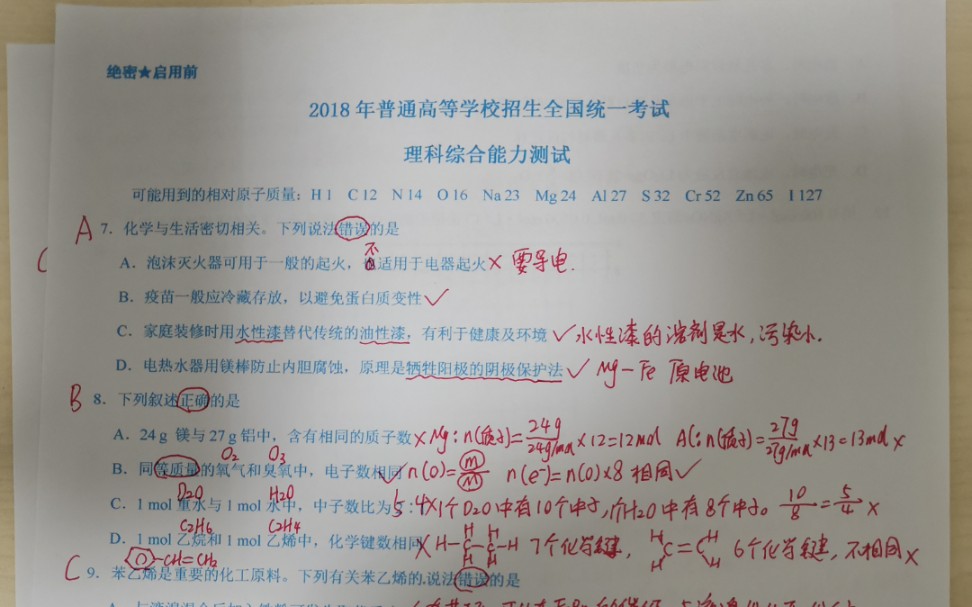 绝密★启用前
2018年普通高等学校招生全国统一考试
理科综合能力测试
可能用到的相对原子质量：H 1 C 12 N 14 O 16 Na 23 Mg 24 Al 27 S 32 Cr 52 Zn 65 I 127
A 7．化学与生活密切相关。下列说法错误的是
不
A．泡沫灭火器可用于一般的起火，适用于电器起火 × 要导电.
B．疫苗一般应冷藏存放，以避免蛋白质变性 ✓
C．家庭装修时用水性漆替代传统的油性漆，有利于健康及环境 ✓ 水性漆的溶剂是水,污染小.
D．电热水器用镁棒防止内胆腐蚀，原理是牺牲阳极的阴极保护法 ✓ Mg－Fe 原电池
B 8．下列叙述正确的是
A．24 g 镁与27 g铝中，含有相同的质子数 × Mg：n(质子)=24g/24g/mol×12=12mol Al：n(质子)=27g/27g/mol×13=13mol ×
O2 O3
B．同等质量的氧气和臭氧中，电子数相同 ✓ n(O)=m/M n(e⁻)=n(O)×8 相同 ✓
D2O H2O
C．1 mol重水与1 mol水中，中子数比为5:4 × 1个D2O中有10个中子,1个H2O中有8个中子。10/8=5/4 ×
C2H6 C2H4
D．1 mol乙烷和1 mol乙烯中，化学键数相同 × H-C-C-H 7个化学键, C=C 6个化学键, 不相同 ×
CH=CH2
C 9．苯乙烯是重要的化工原料。下列有关苯乙烯的说法错误的是